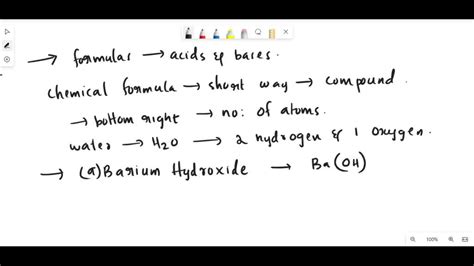 → formular → acids & bares.
chemical formula → short way → compound.
→ bottom right → no: of atoms.
water → H2O → 2 hydrogen & 1 oxygen.
→ (a) Barium Hydroxide → Ba(OH)
100%